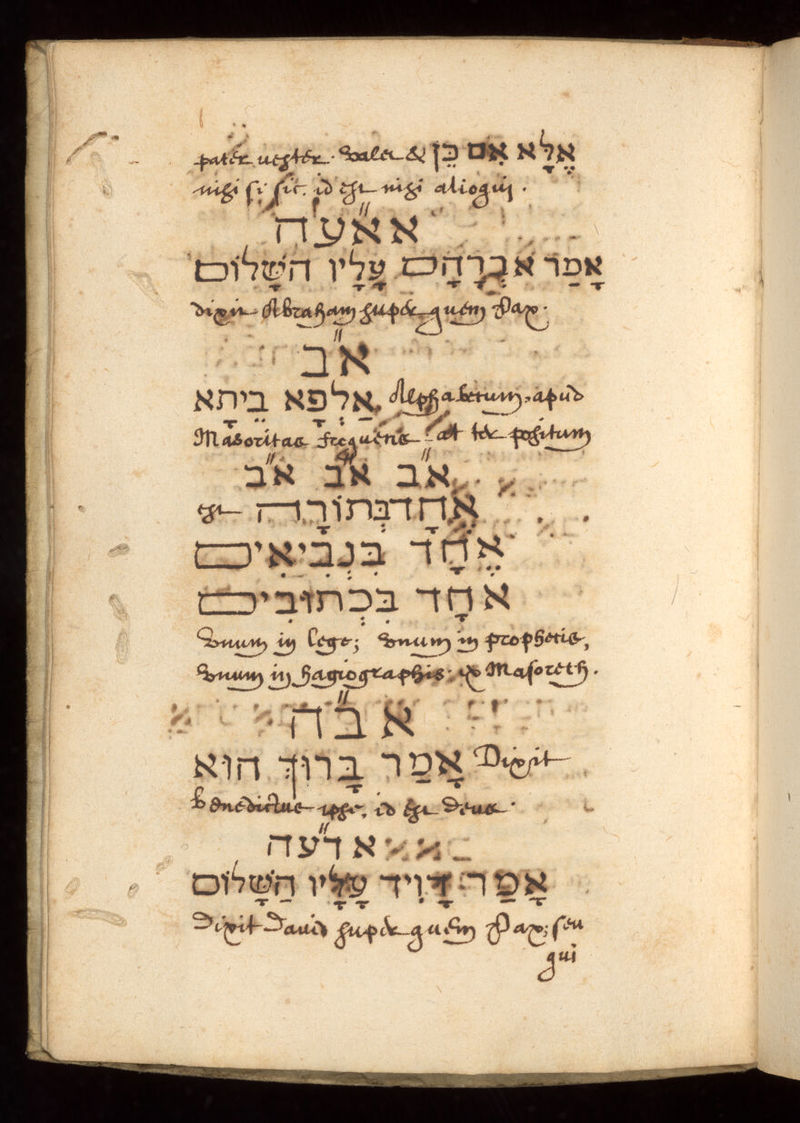 pater uester. Valet & אֶלָּא אִם כֵּן
nisi si sic. id est nisi alioqui.
אא״עה
אָמַר אַבְרָהָם עָלָיו הַשָּׁלוֹם
dixit Abraham super quem Pax.
א״ב
אַלְפָא בֵיתָא Alphabetum, apud
Masoritas frequens at ter positum
א״ב א״ב א״ב
est אֶחָד בְּתוֹרָה
אֶחָד בִּנְבִיאִים
אֶחָד בִּכְתוּבִים
Vnum in Lege; Vnum in prophetis,
Vnum in hagiographis; ex Masoreth.
אב״ה
אָמַר בָּרוּךְ הוּא Dixit
Benedictus ipse, id est Deus.
אד״עה
אָמַר דָּוִיד עָלָיו הַשָּׁלוֹם
Dixit David super quem Pax; seu
qui